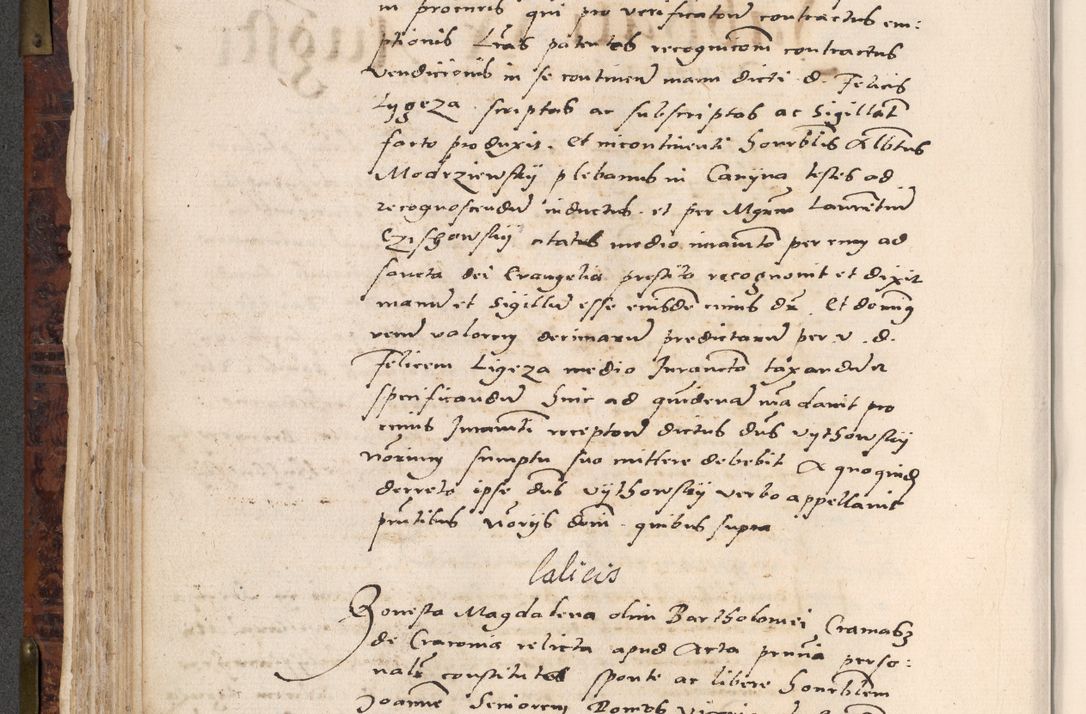 in proceris qui pro verificatione contractus em:
ptionis Lras patentes recognicom contractus
vendicionis in se continen manu dicti d. Felicis
Lygeza scriptas ac subscriptas ac sigillat
facto produxit. Et incontinenti honrblis Albtus
Modrziewsky plebanus in Canyna testis ad
recognoscendu inductus et per Mgrm Laurentiu
Czischowsky citatus medio iuramto per eum ad
sancta dei Evangelia prestito recognovit et dixit
manu et sigillu esse eiusde cuius dr. Et domig
veru valorem decimaru predictaru per v. d.
Felicem Ligeza medio Iuramto taxandu et
specificandu hinc ad quidena mandavit pro
cuius Iuramti receptore dictus dns Vythowsky
norium sumptu suo mittere debebit A quoquid
decreto ipse dns Vythowsky verbo appellavit
pntibus noriis dom. quibus supra
Calicis
Honesta Magdalena olim Bartholomei Cramarz
de Cracovia relicta apud Acta pntia perso:
nalr constituta sponte ac libere honrblem
Joannem Seniorem